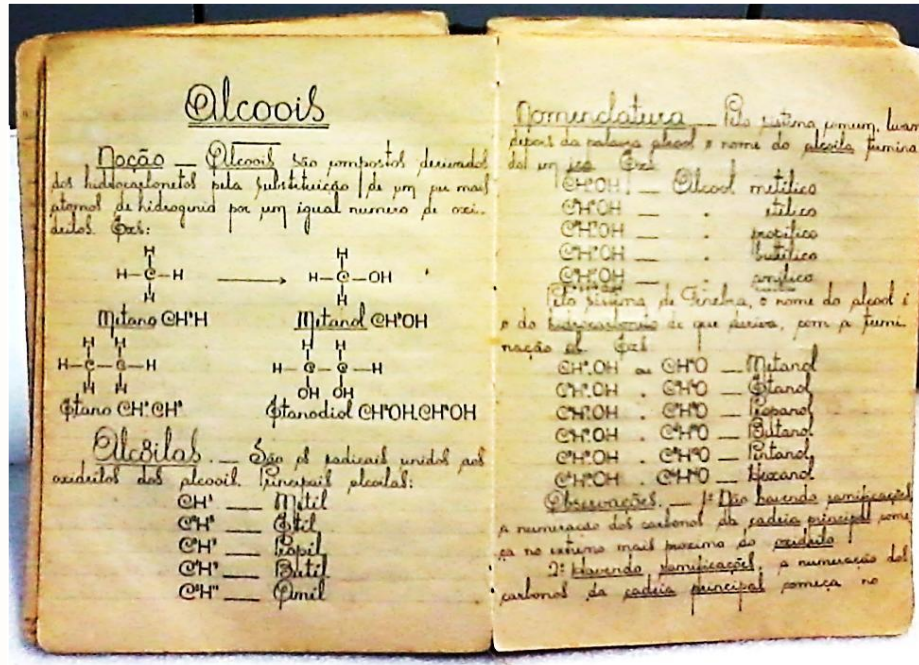 Alcoois
Noção — Alcoois são compostos derivados
dos hidrocarbonetos pela substituição de um ou mais
atomos de hidrogenio por um igual numero de oxi-
drilos. Exs:
H H
H—C—H → H—C—OH
H H
Metano CH³H Metanol CH³OH
H H H H
H—C—C—H H—C—C—H
H H OH OH
Etano CH³.CH³ Etanodiol CH²OH.CH²OH
Alcoilas. — São os radicais unidos aos
oxidrilos dos alcoois. Principais alcoilas:
CH³ — Metil
C²H⁵ — Etil
C³H⁷ — Propil
C⁴H⁹ — Butil
C⁵H¹¹ — Amil
Nomenclatura — Pelo sistema comum,
depois da palavra alcool o nome do alcoila termina
do em ico. Exs:
CH³OH — Alcool metilico
C²H⁵OH — " etilico
C³H⁷OH — " propilico
C⁴H⁹OH — " butilico
C⁵H¹¹OH — " amilico
Pelo sistema de Genebra, o nome do alcool é
o do hidrocarboneto de que deriva, com a termi-
nação ol. Exs:
OH ou — Metanol
OH . — Etanol
OH . — Propanol
OH . — Butanol
OH . — Pentanol
OH . — Hexanol
Observações. — 1ª Não havendo ramificações
a numeração dos carbonos da cadeia principal come
ça no extremo mais proximo do oxidrilo
2ª Havendo ramificações, a numeração dos
carbonos da cadeia principal começa no